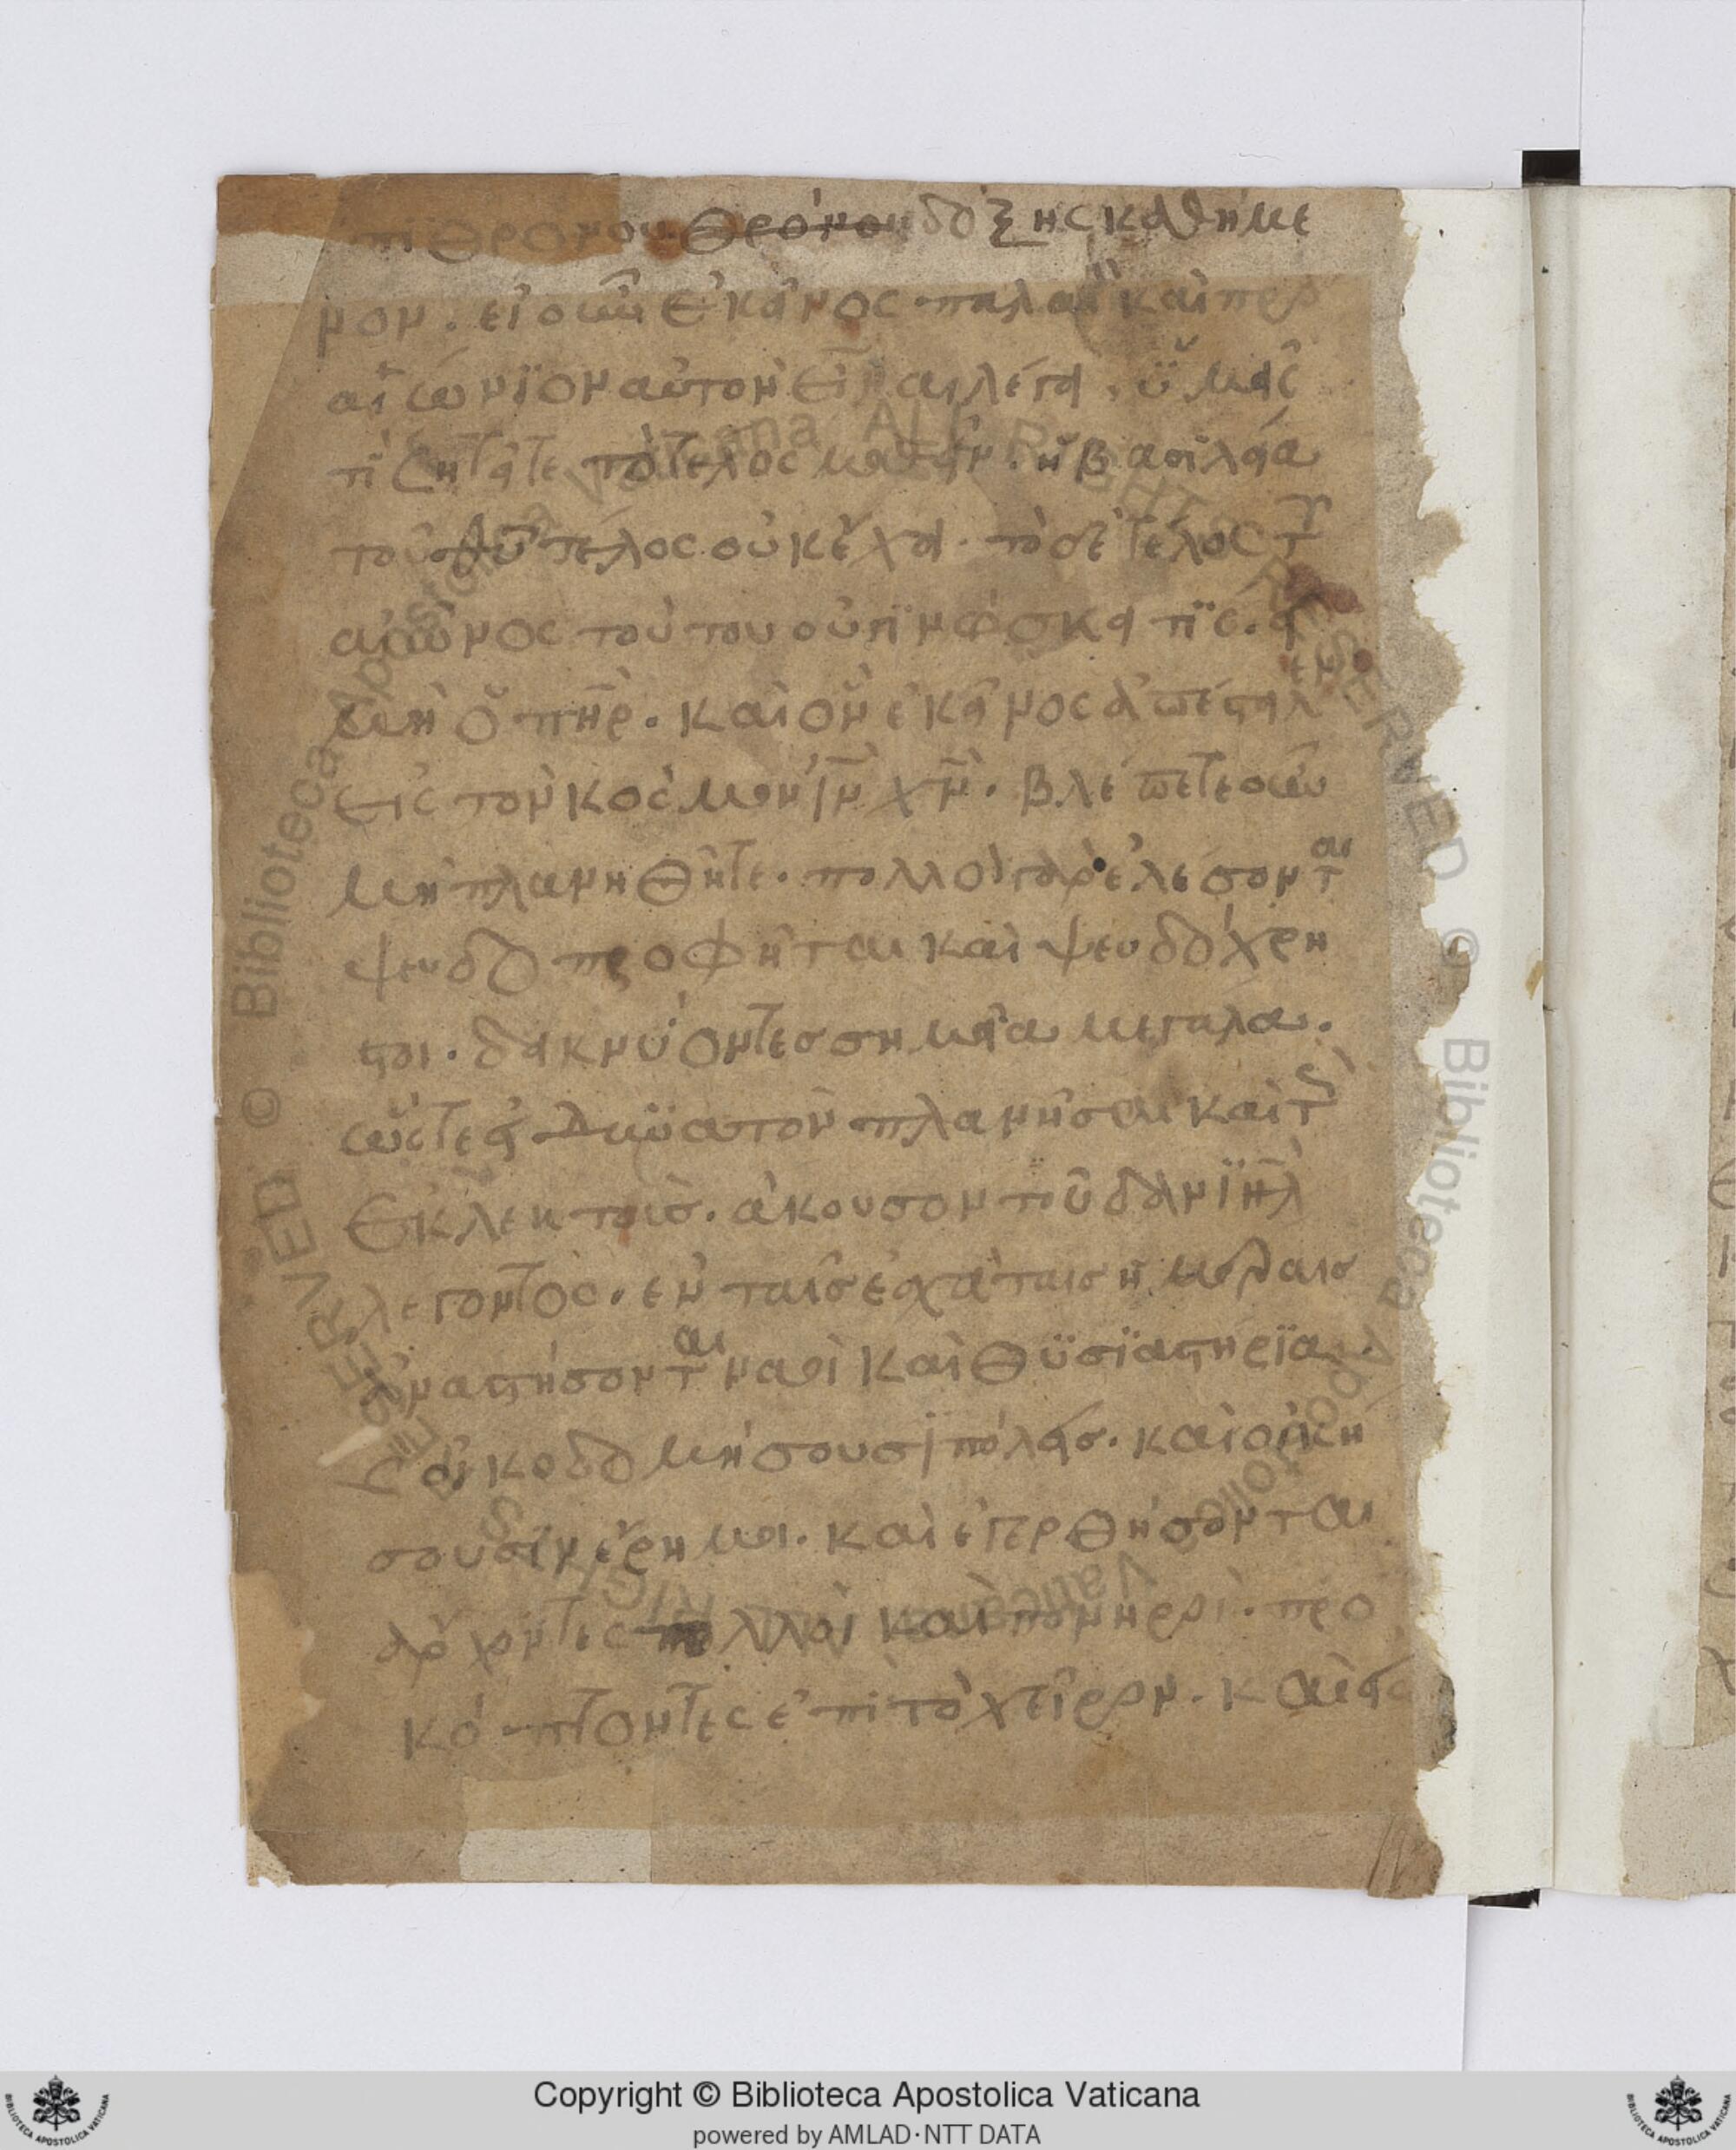 πὶ θρόνου θρόνου δόξης καθήμε
νον. εἰ οὖν ἐκεῖνος παλαιὰ καίπερ
αἰώνϊον αὐτὸν εἶναι λέγει, ὑμεῖς
τί ζητεῖτε τὸ τέλος μαθεῖν. ἡ βασιλεία
τοῦ θῦ τέλος οὐκ έχει. τὸ δὲ τέλος τ
αἰῶνος τούτου οὐ γϊνώσκει τϊς. εἰ
μὴ ὁ πηρ. καὶ ὃν ἐκεῖνος ἀπέστειλεν
εἰς τὸν κόσμον ἰν χν. βλέπετε οὖν
μὴ πλανηθῆτε. πολλοὶ γὰρ ἐλεύσονται
ψευδοπροφῆται καὶ ψευδόχρη
στοι. δεικνύοντες σημεῖα μεγάλα.
ὥστε εἰ δυνατὸν πλανῆσαι καὶ τ
ἐκλεκτούς. ἄκουσον τοῦ δανϊὴλ
λέγοντος. ἐν ταῖς ἐσχάταις ἡμέραις
ἀναστήσονται ναοὶ καὶ θϋσϊαστήρϊα.
οἰκοδομήσουσι πόλεις. καὶ οἰκή
σουσιν έρημοι. καὶ ἐγερθήσονται
άρχοντες πολλοὶ καὶ πονηροί. προ
κόπτοντες ἐπὶ τὸ χεῖρον. καὶ εἰς
Copyright © Biblioteca Apostolica Vaticana
powered by AMLAD·NTT DATA